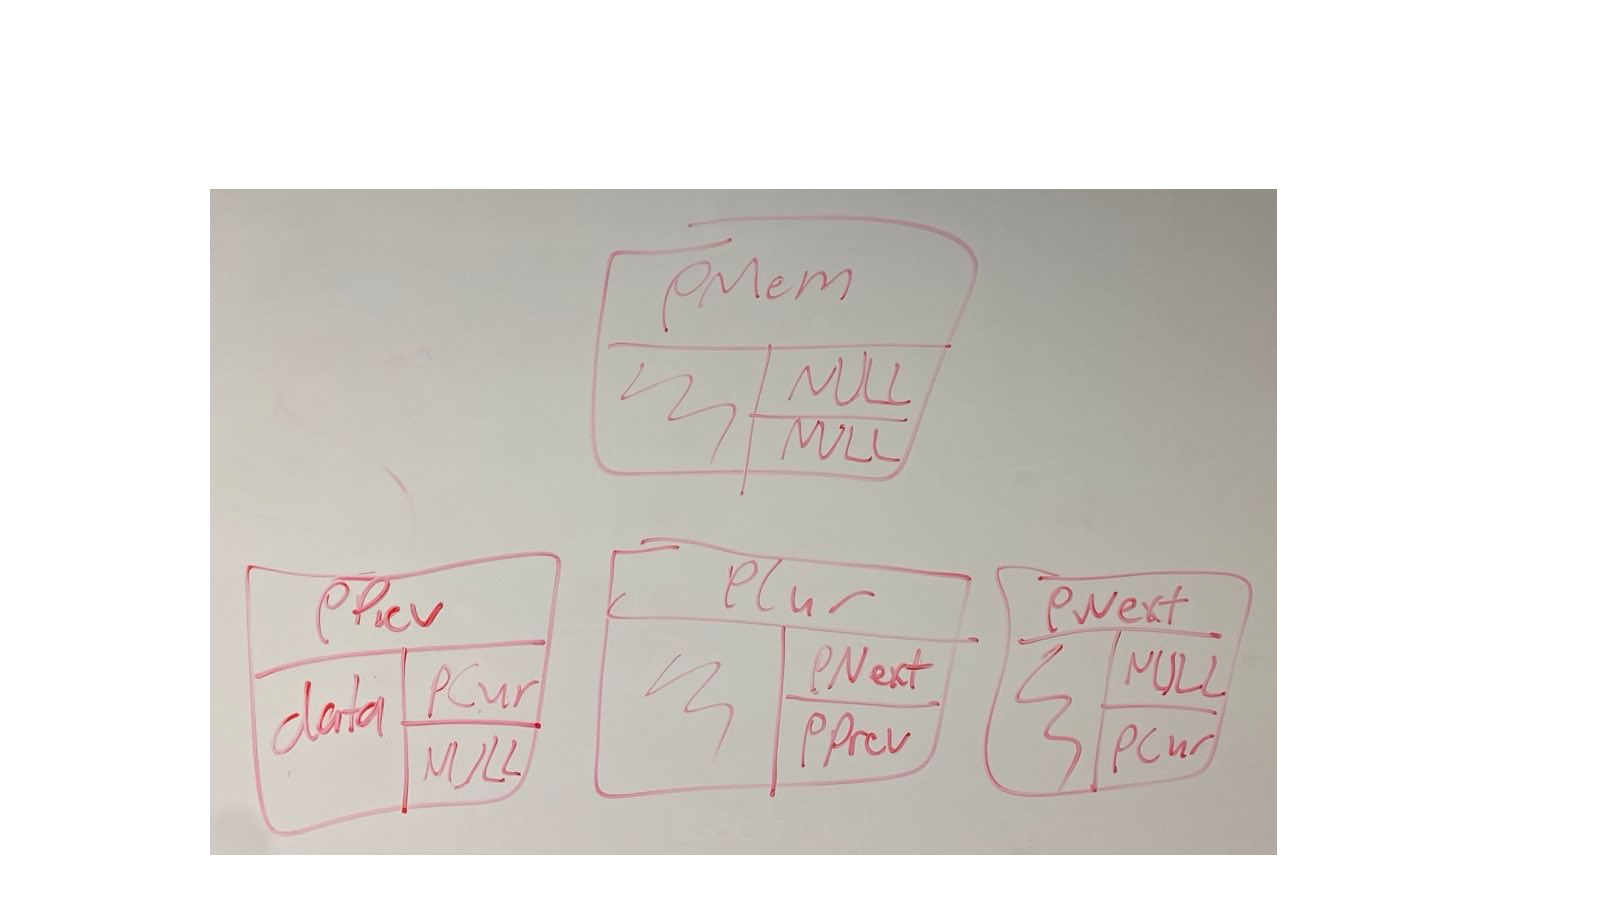 pMem
NULL
NULL
pPrev
data
pCur
NULL
pCur
pNext
pPrev
pNext
NULL
pCur